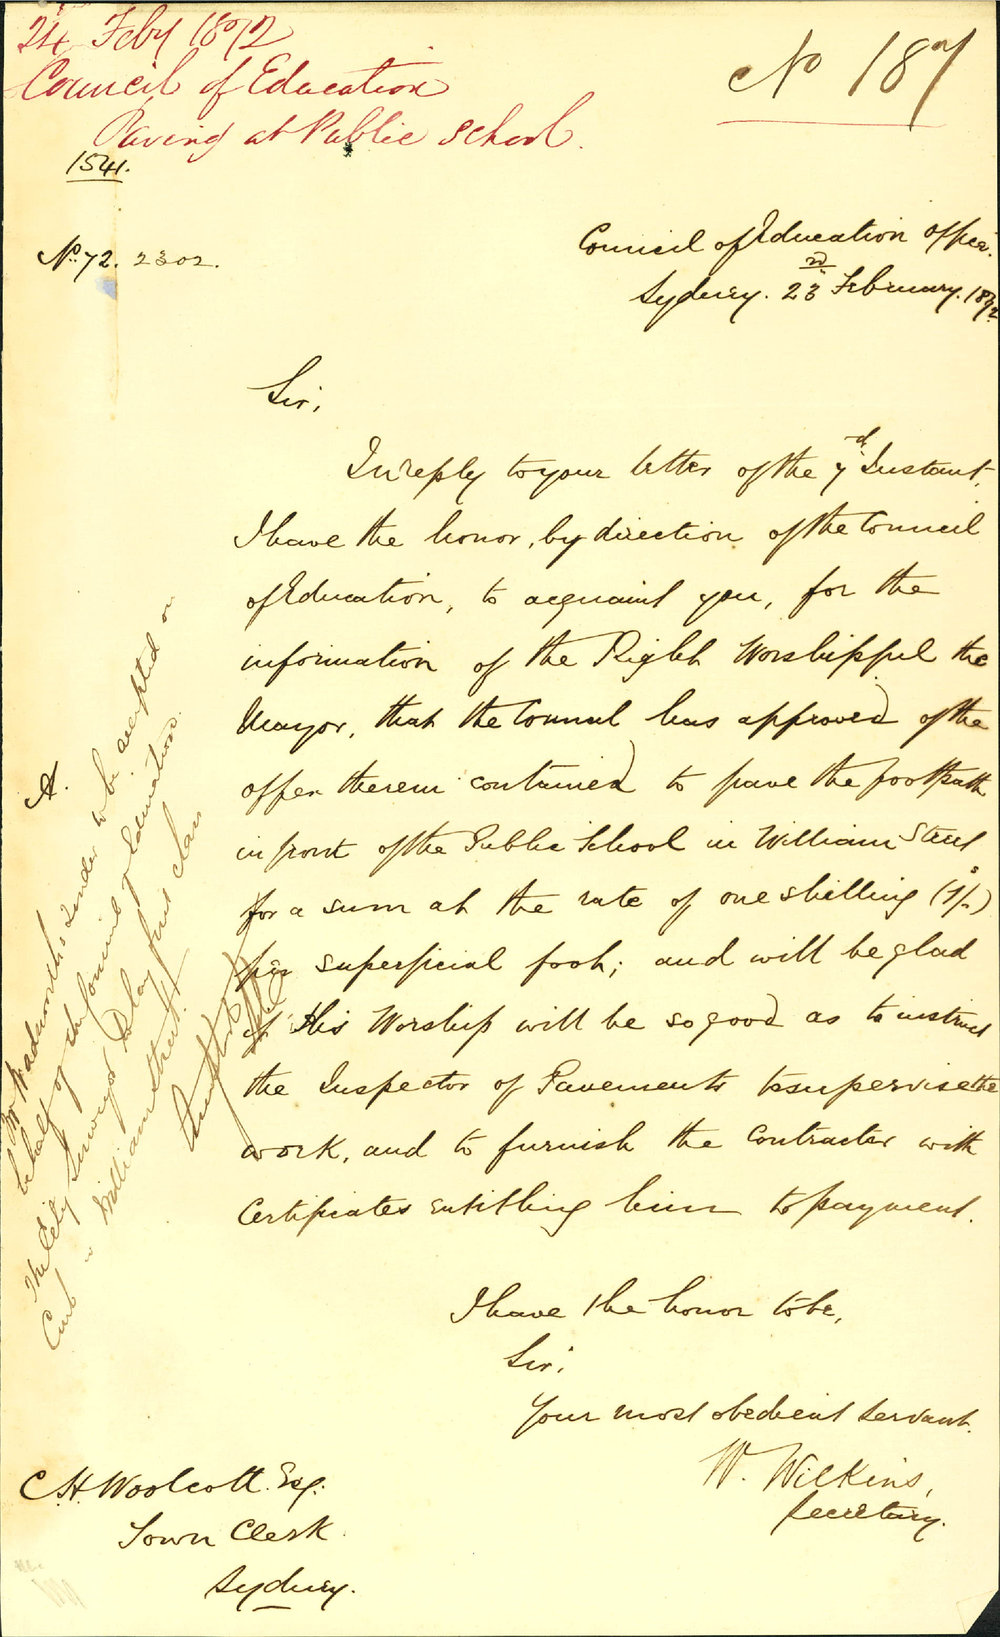 24 Feby 1872
Council of Education
Paving at Public School.
1541.
No 187
No. 72. 2302.
Council of Education Office.
Sydney. 23rd February. 1872.
Sir,
In reply to your letter of the 7d Instant,
I have the honor, by direction of the Council
of Education, to acquaint you, for the
information of the Right Worshipful the
Mayor, that the Council has approved of the
offer therein contained to pave the footpath
in front of the Public School in William Street
for a sum at the rate of one shilling (1/-)
per superficial foot; and will be glad
if His Worship will be so good as to instruct
the Inspector of Pavements to supervise the
work, and to furnish the Contractor with
Certificates entitling him to payment.
I have the honor to be,
Sir,
Your most obedient servant.
W. Wilkins,
Secretary.
C.H. Woolcott. Esq.
Town Clerk.
Sydney.
A.
Mr Wadsworth's Tender to be accepted on
behalf of the Council of Education.
The City Surveyor to lay first class
Curb in William Street